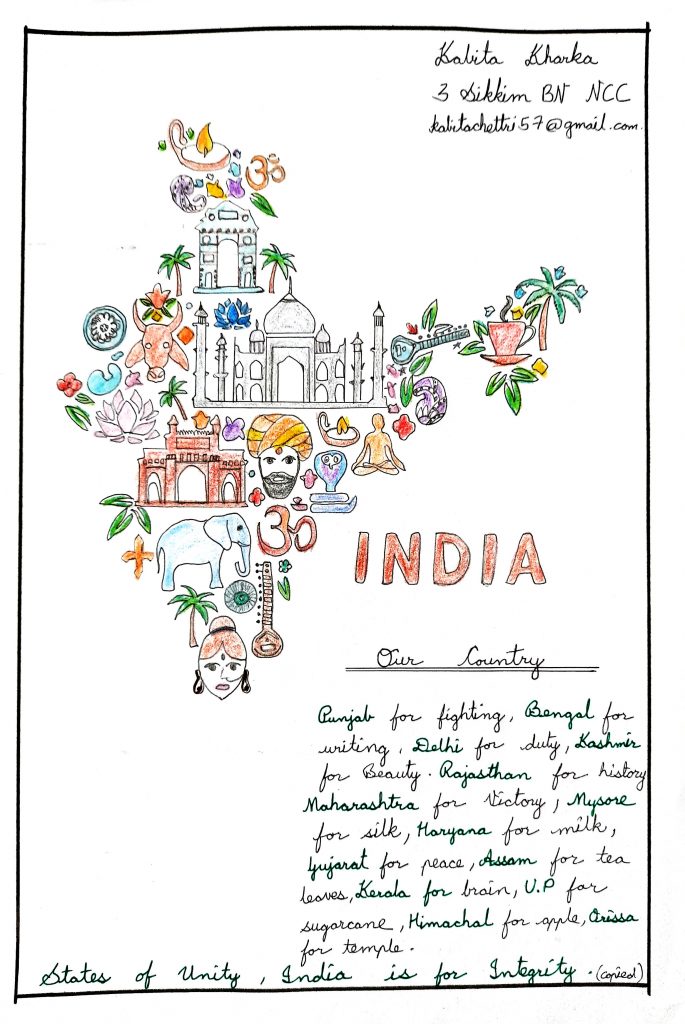 Kabita Kharka
3 Sikkim BN NCC
kabitachettri57@gmail.com.
INDIA
Our Country
Punjab for fighting, Bengal for
writing, Delhi for duty, Kashmir
for Beauty. Rajasthan for history
Maharashtra for Victory, Mysore
for silk, Haryana for milk,
Gujarat for peace, Assam for tea
leaves, Kerala for brain, U.P for
sugarcane, Himachal for apple, Orissa
for temple.
States of Unity, India is for Integrity. (copied)